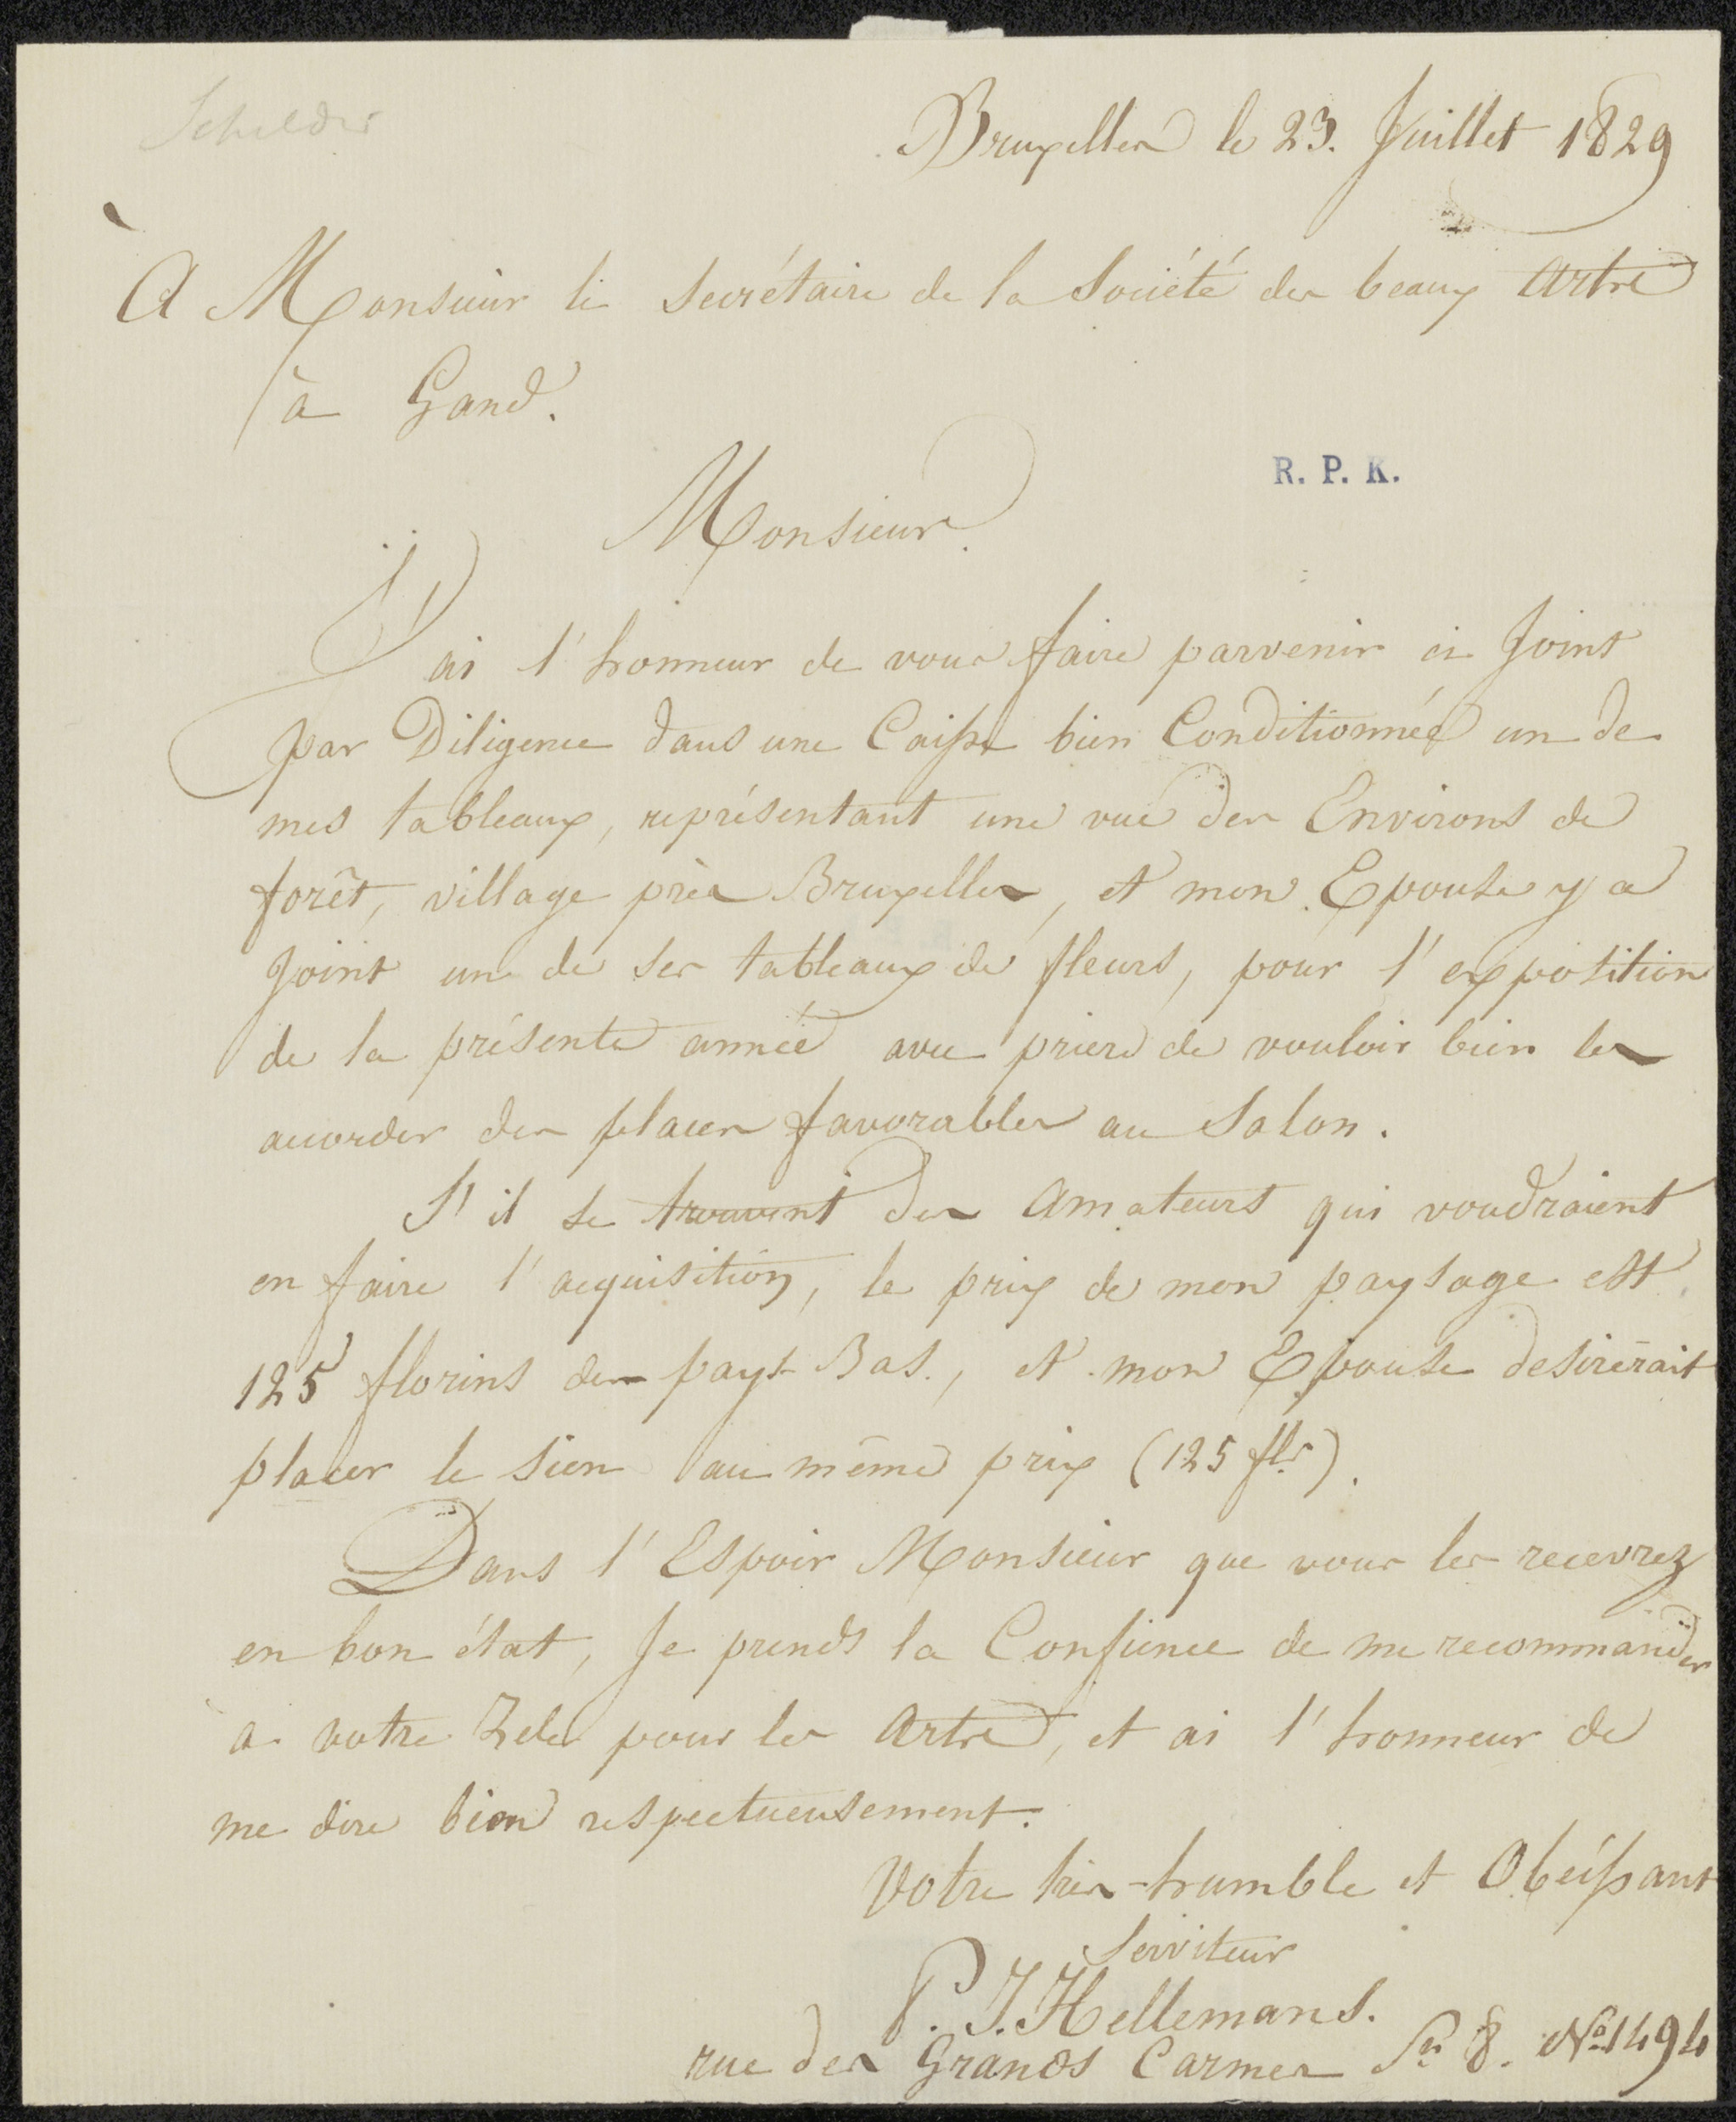 Schilder
Bruxelles le 23. Juillet 1829
À Monsieur le Secrétaire de la Société des beaux Arts
à Gand.
R. P. K.
Monsieur.
J'ai l'honneur de vous faire parvenir ci Joint
par Diligence dans une Caisse bien Conditionnée un de
mes tableaux, représentant une vue des Environs de
forêt, village près Bruxelles, et mon Epouse y a
Joint un de ses tableaux de fleurs, pour l'exposition
de la présente année avec priere de vouloir bien les
accorder des places favorables au Salon.
S'il se trouvent des Amateurs qui voudraient
en faire l'acquisition, le prix de mon paysage est
125 florins des pays-Bas., et mon Epouse desirerait
placer le sien au même prix (125 fls).
Dans l'Espoir Monsieur que vous les recevrez
en bon état, Je prends la Confience de me recommander
a votre Zele pour les Arts, et ai l'honneur de
me dire bien respectueusement.
Votre très-humble et Obéissant
Serviteur
P. J. Hellemans.
rue des Grands Carmes Sn 8. No 1494